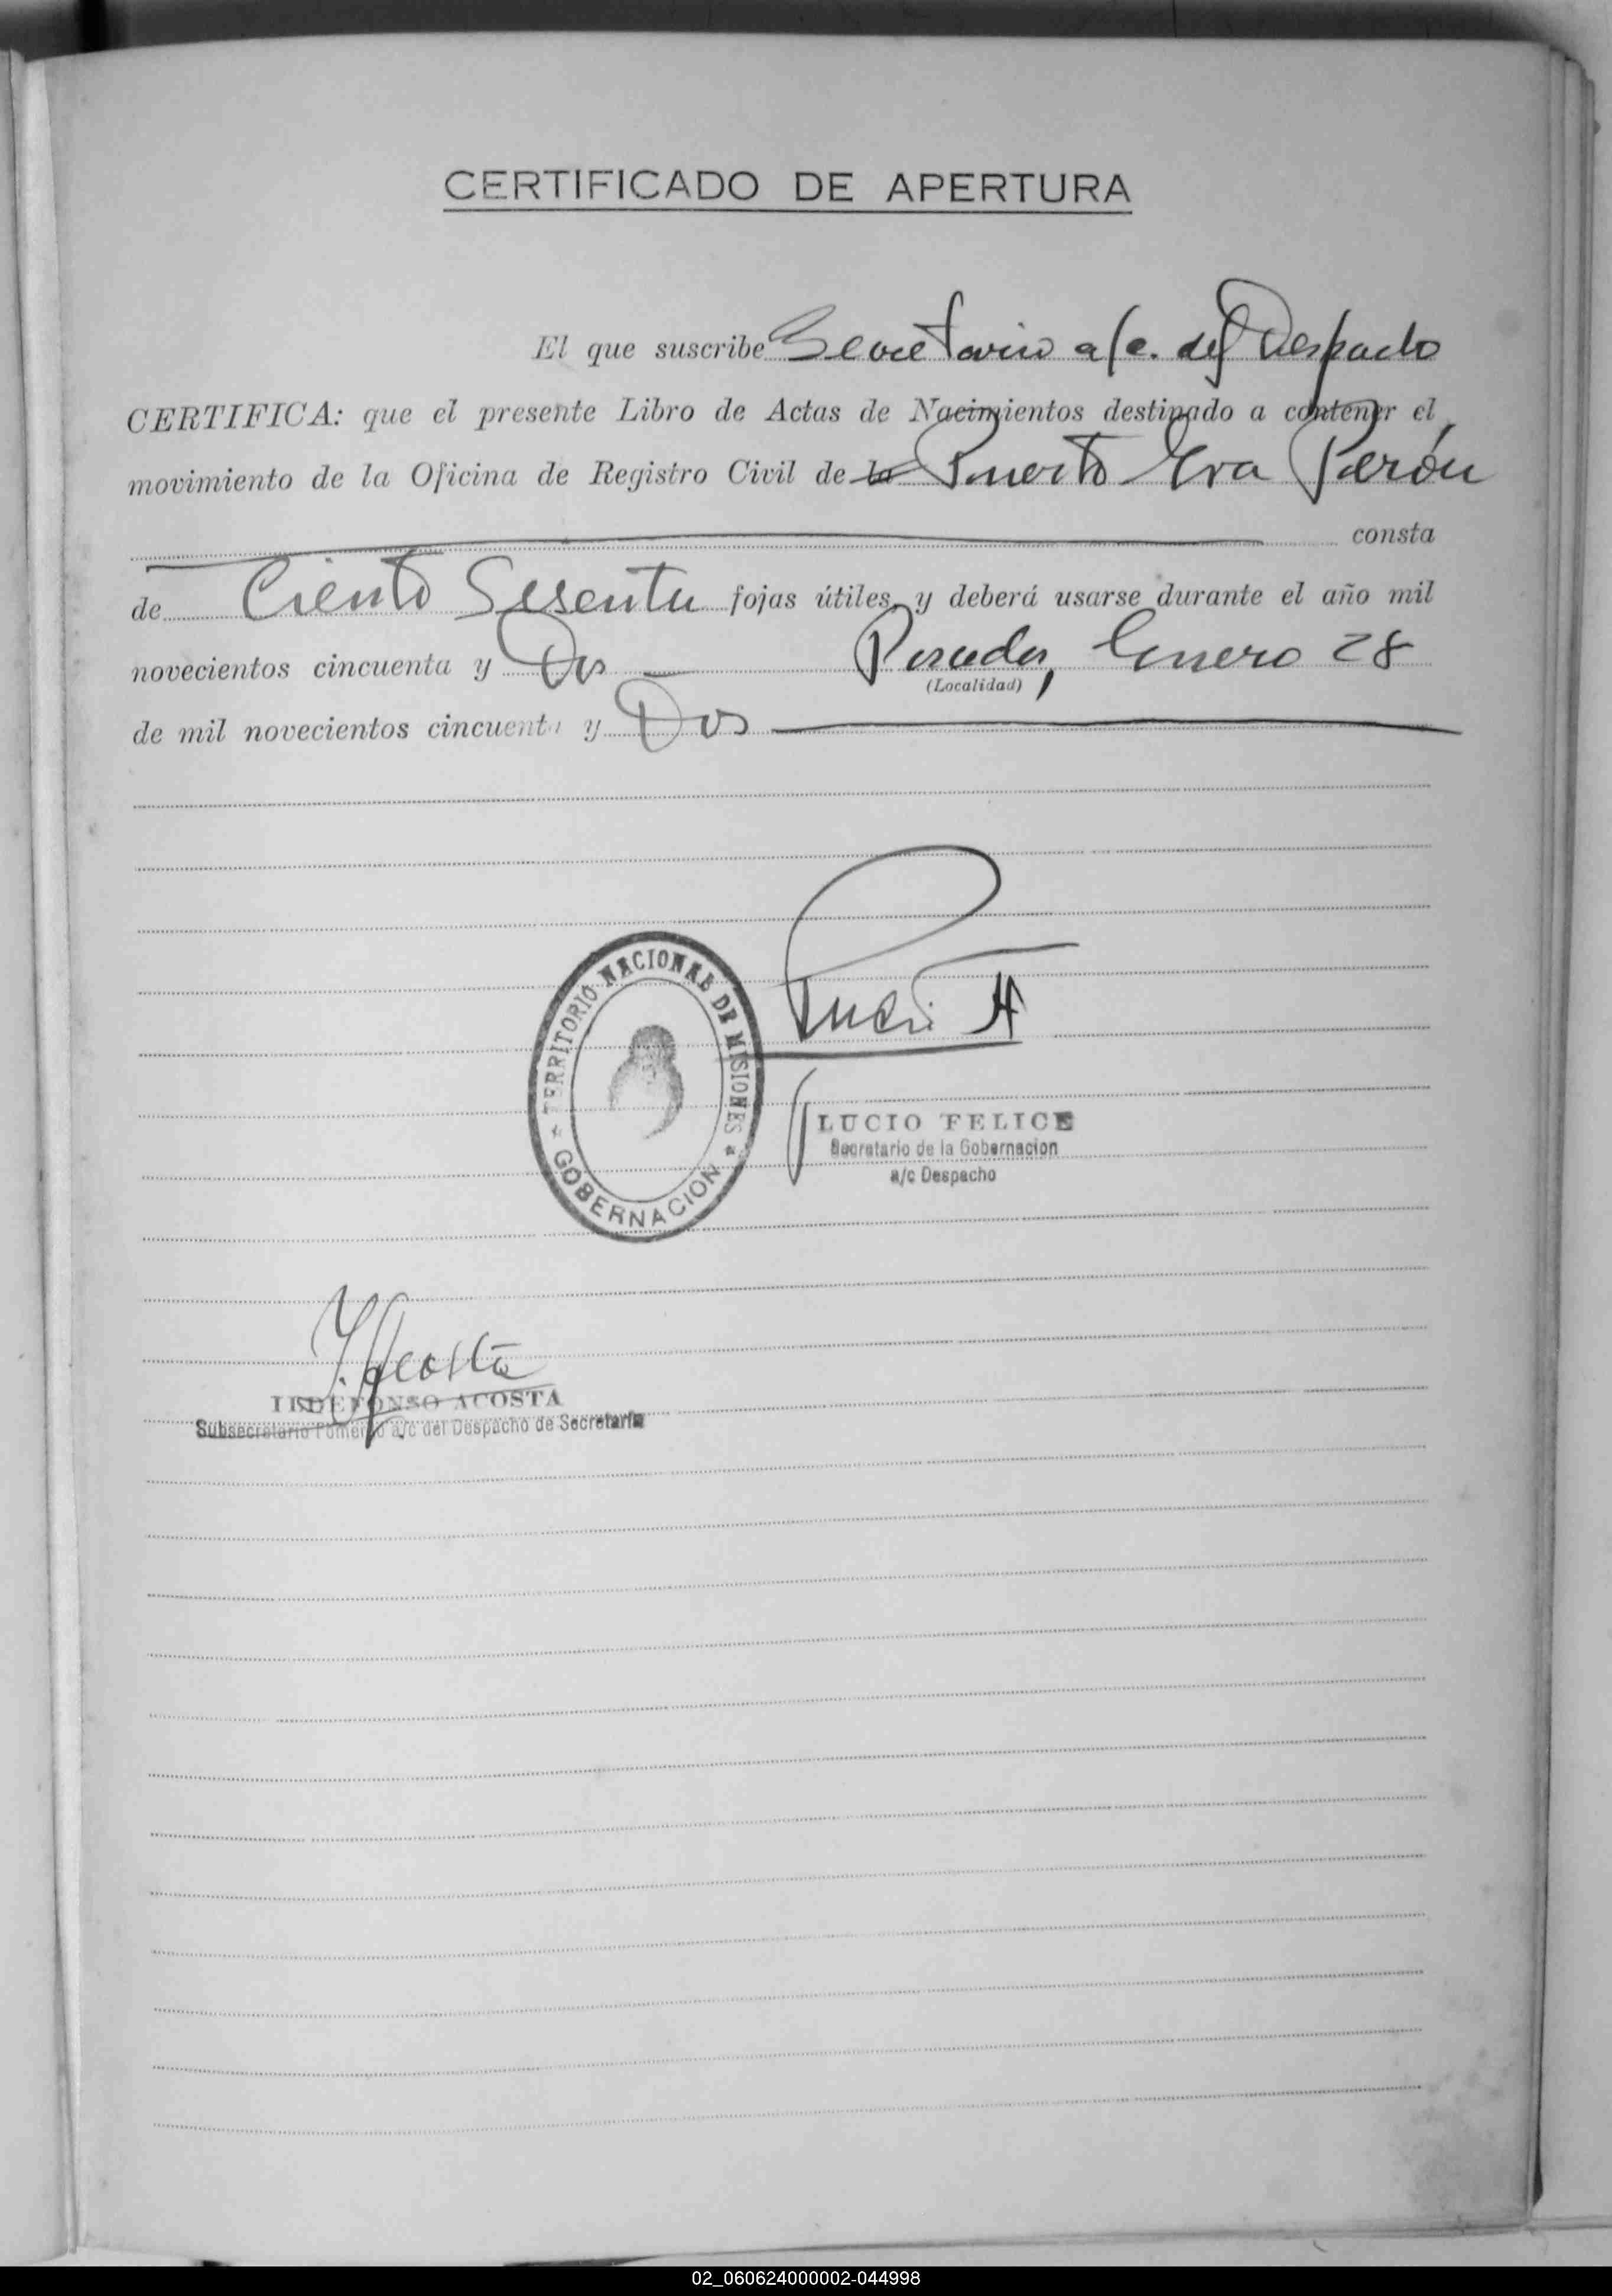 CERTIFICADO DE APERTURA
El que suscribe Secretario a/c. del Despacho
CERTIFICA: que el presente Libro de Actas de Nacimientos destinado a contener el
movimiento de la Oficina de Registro Civil de la Puerto Eva Perón
consta
de Ciento Sesenta fojas útiles, y deberá usarse durante el año mil
novecientos cincuenta y Dos Posadas, Enero 28
(Localidad)
de mil novecientos cincuenta y Dos
TERRITORIO NACIONAL DE MISIONES
* GOBERNACION *
LUCIO FELICE
Secretario de la Gobernacion
a/c Despacho
I. Acosta
ILDEFONSO ACOSTA
Subsecretario Fomento a/c del Despacho de Secretaría
02_060624000002-044998